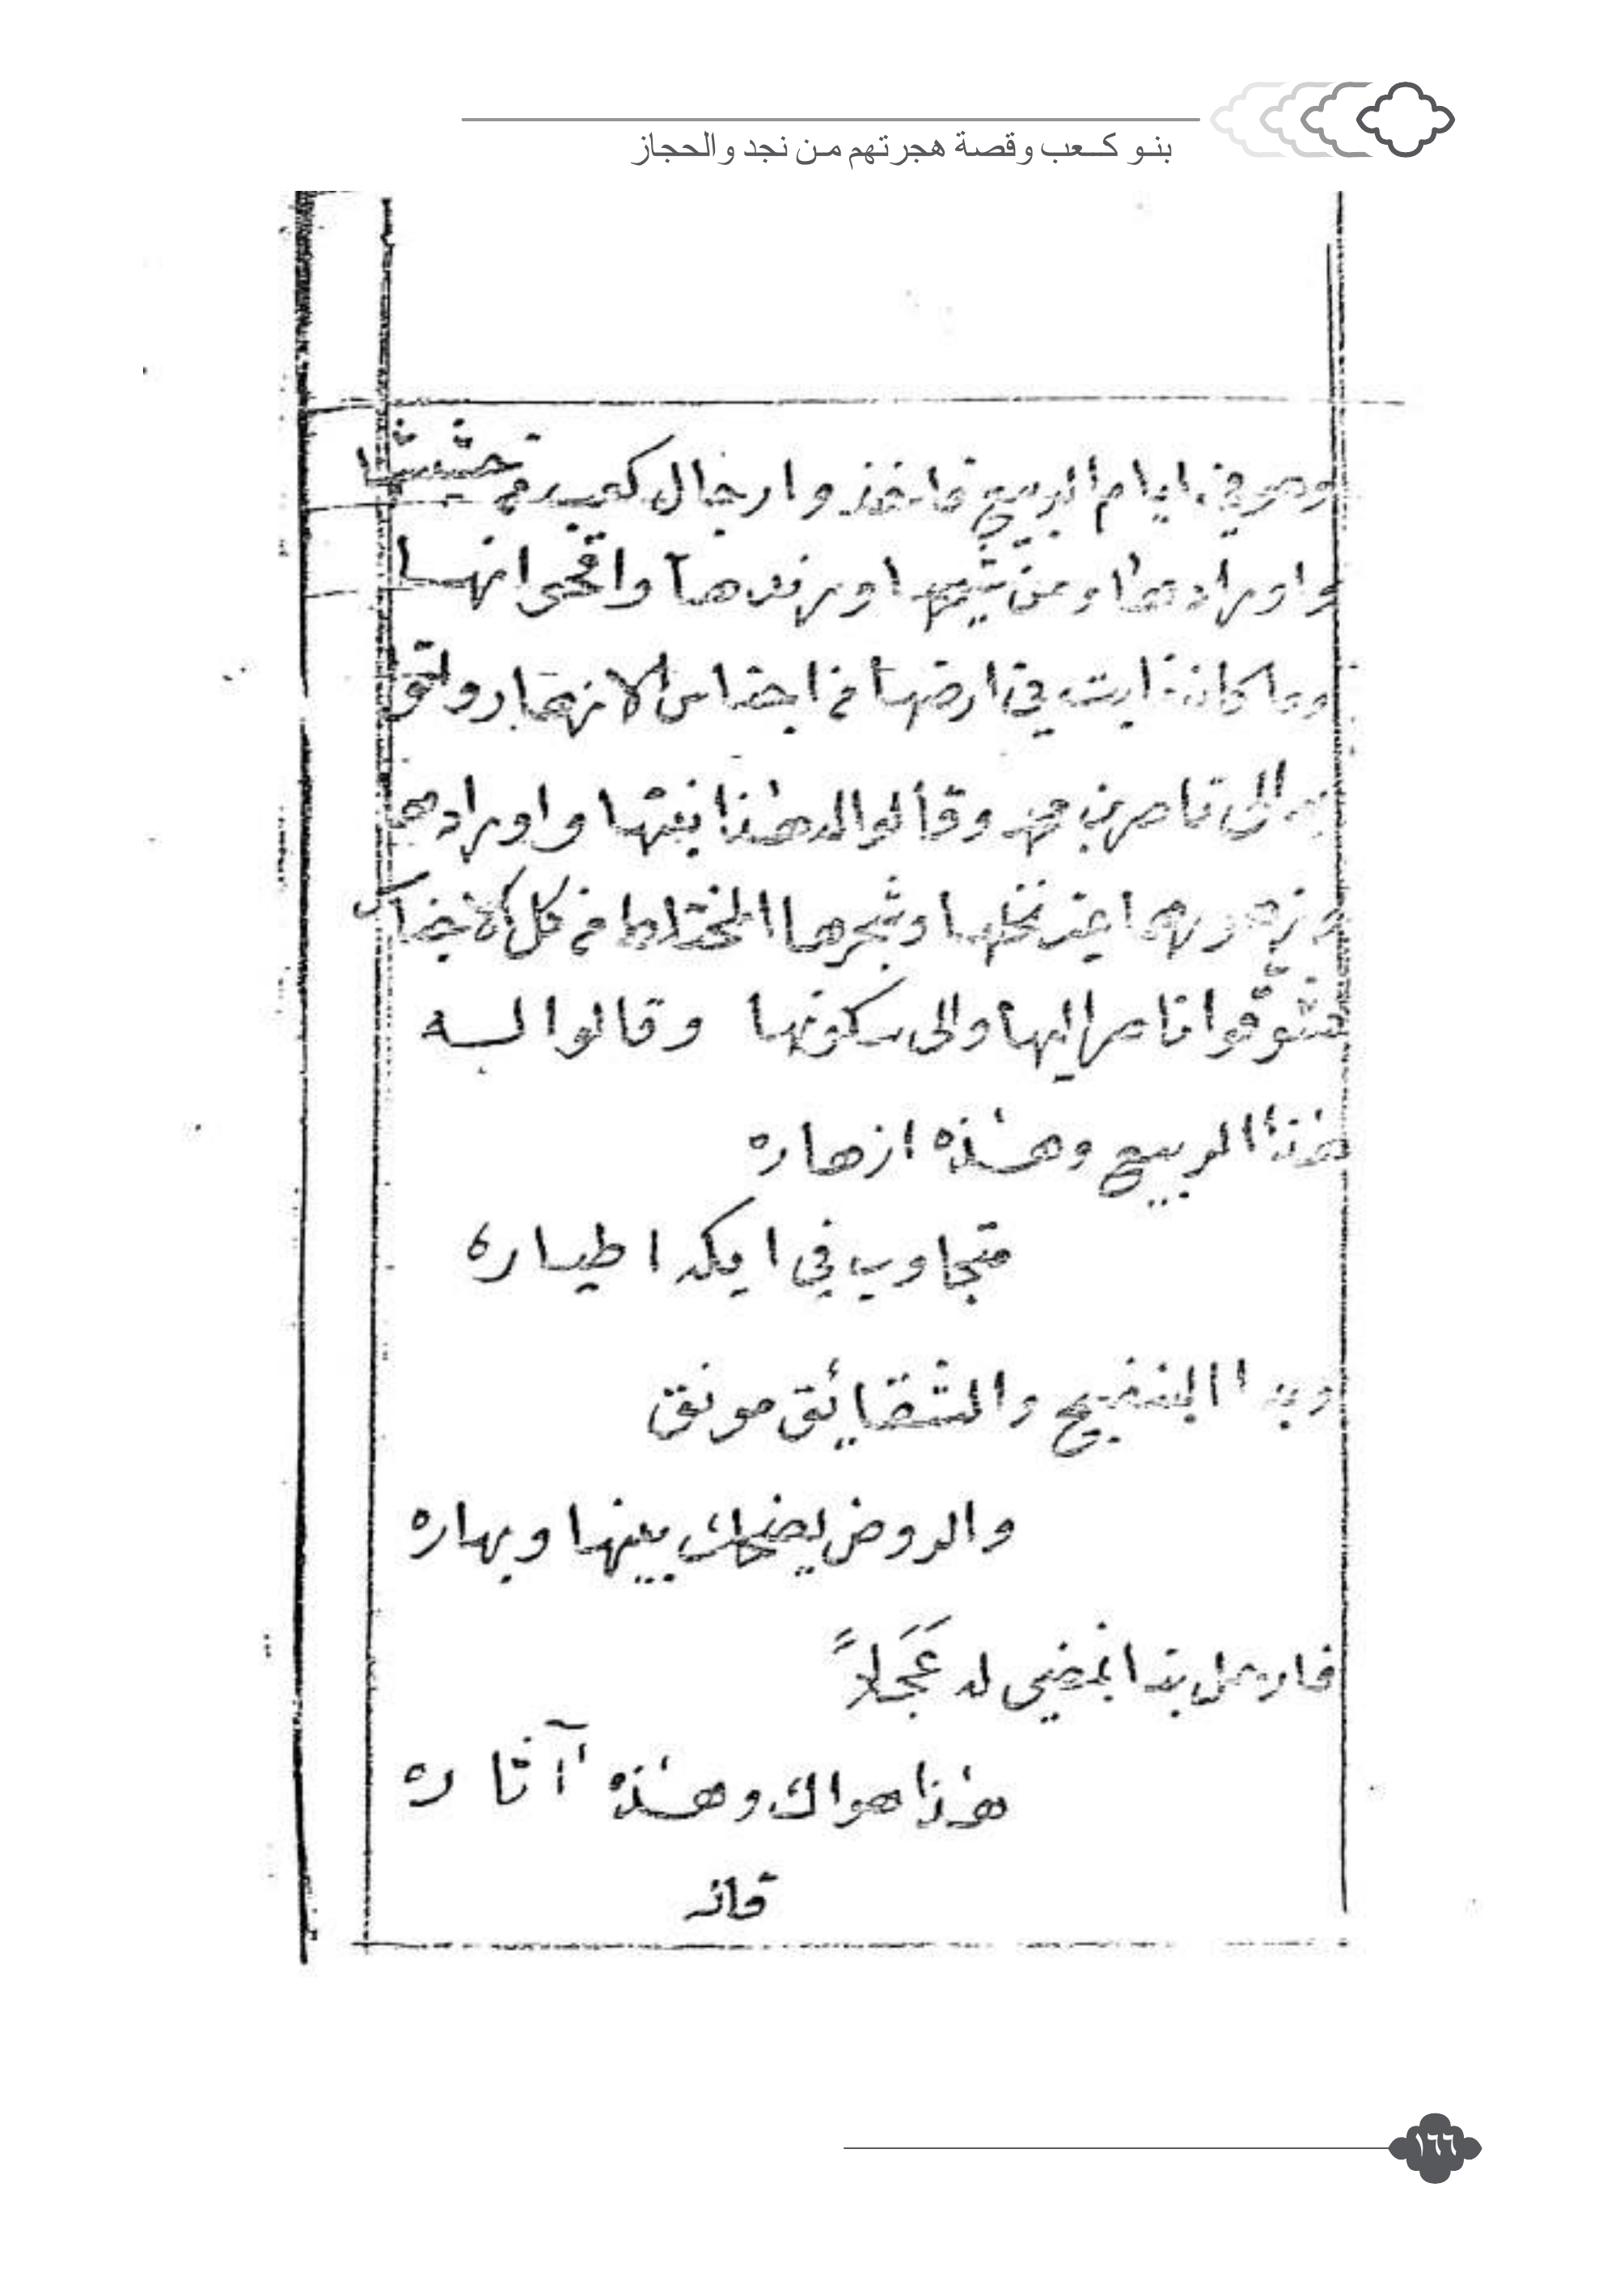 بنو كعب وقصة هجرتهم من نجد والحجاز
وهو في ايام الربيع فاخذوا رجال كعب من حشيشها
واورادها ومن شيحها ورندها واقحوانها
وما كان نابت في ارضها من اجناس الازهار واتو
الى ناصر بن محمد وقالوا له هذا نبتها واورادها
وزهورها عند نخلها وشجرها المختلط من كل الاجناس
فشوّقوا ناصر اليها والى سكونها وقالوا له
هذا الربيع وهذه ازهاره
متجاوب في ايكه اطياره
وبدا البنفسج والشقائق مونق
والروض يضحك بينها وبهاره
فارحل بنا نمضي له عَجَلاً
هذا هواك وهذه آثاره
١٦٦